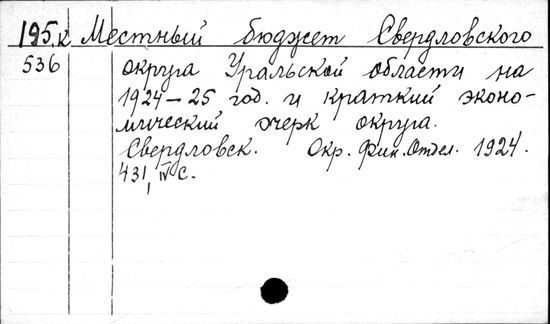 195.к Местный бюджет Свердловского
536 округа Уральской области на
1924-25 год. и краткий эконо-
мический очерк округа.
Свердловск. Окр. Фин. Отдел. 1924.
431, IV с.